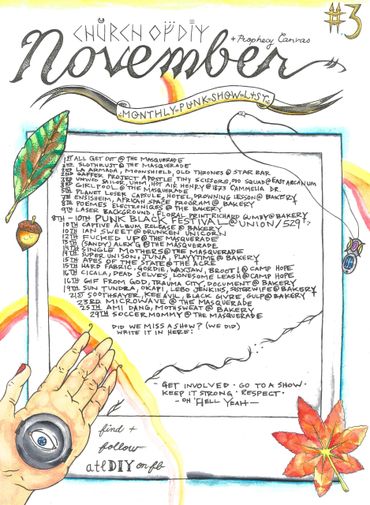 #3
CHÜRCH OF DIY
+ Prophecy Canvas
November
·MONTHLY·PUNK·SHOW·LIST·
1ST ALL GET OUT @ THE MASQUERADE
2ND SLOTHRUST @ THE MASQUERADE
3RD LA ARMADA, MOONSHIELD, OLD THRONES @ STAR BAR
3RD GAFFER PROJECT, APOSTLE, TINY SCISSORS, POD SQUAD @ EAST ARCANUM
3RD UNWED SAILOR, UHHM, HOT AIR HENRY @ 1373 CAMMELIA DR.
3RD GIRLPOOL @ THE MASQUERADE
PLANET LOSER, CAPSULE, HOTEL, DROWNING LESSON @ BAKERY
7TH ENSISHEIM, AFRICAN SPACE PROGRAM @ BAKERY
8TH POEMES ELECTRONIQUES @ THE BAKERY
9TH LASER BACKGROUND, FLORAL PRINT, RICHARD GUMBY @ BAKERY
9TH - 10TH PUNK BLACK FESTIVAL @ UNION/529
10TH CAPTIVE ALBUM RELEASE @ BAKERY
10TH IAN SWEET @ DRUNKEN UNICORN
12TH FUCKED UP @ THE MASQUERADE
13TH (SANDY) ALEX G @ THE MASQUERADE
14TH SINGLE MOTHERS @ THE MASQUERADE
14TH SUPER UNISON, JUNA, PLAYYTIME @ BAKERY
15TH APES OF THE STATE @ THE ACRE
15TH HARD FABRIC, GORDIE, WAXJAW, BROOT! @ CAMP HOPE
16TH CICALA, DEAD SELVES, LONESOME LEASH @ CAMP HOPE
16TH GIF FROM GOD, TRAUMA CITY, DOCUMENT @ BAKERY
19TH SUN TUNDRA, OKAPI, LEBO JENKINS, SISTERWIFE @ BAKERY
21ST SOOTHSAYER, KEE AVIL, BLACK GIVRE, GULP @ BAKERY
23RD MICROWAVE @ THE MASQUERADE
25TH AMI DANG, MOTHSWEAT @ BAKERY
29TH SOCCER MOMMY @ THE MASQUERADE
DID WE MISS A SHOW? (WE DID)
WRITE IT IN HERE:
- GET INVOLVED · GO TO A SHOW ·
KEEP IT STRONG · RESPECT ·
- OH HELL YEAH -
find +
follow
atlDIY on fb